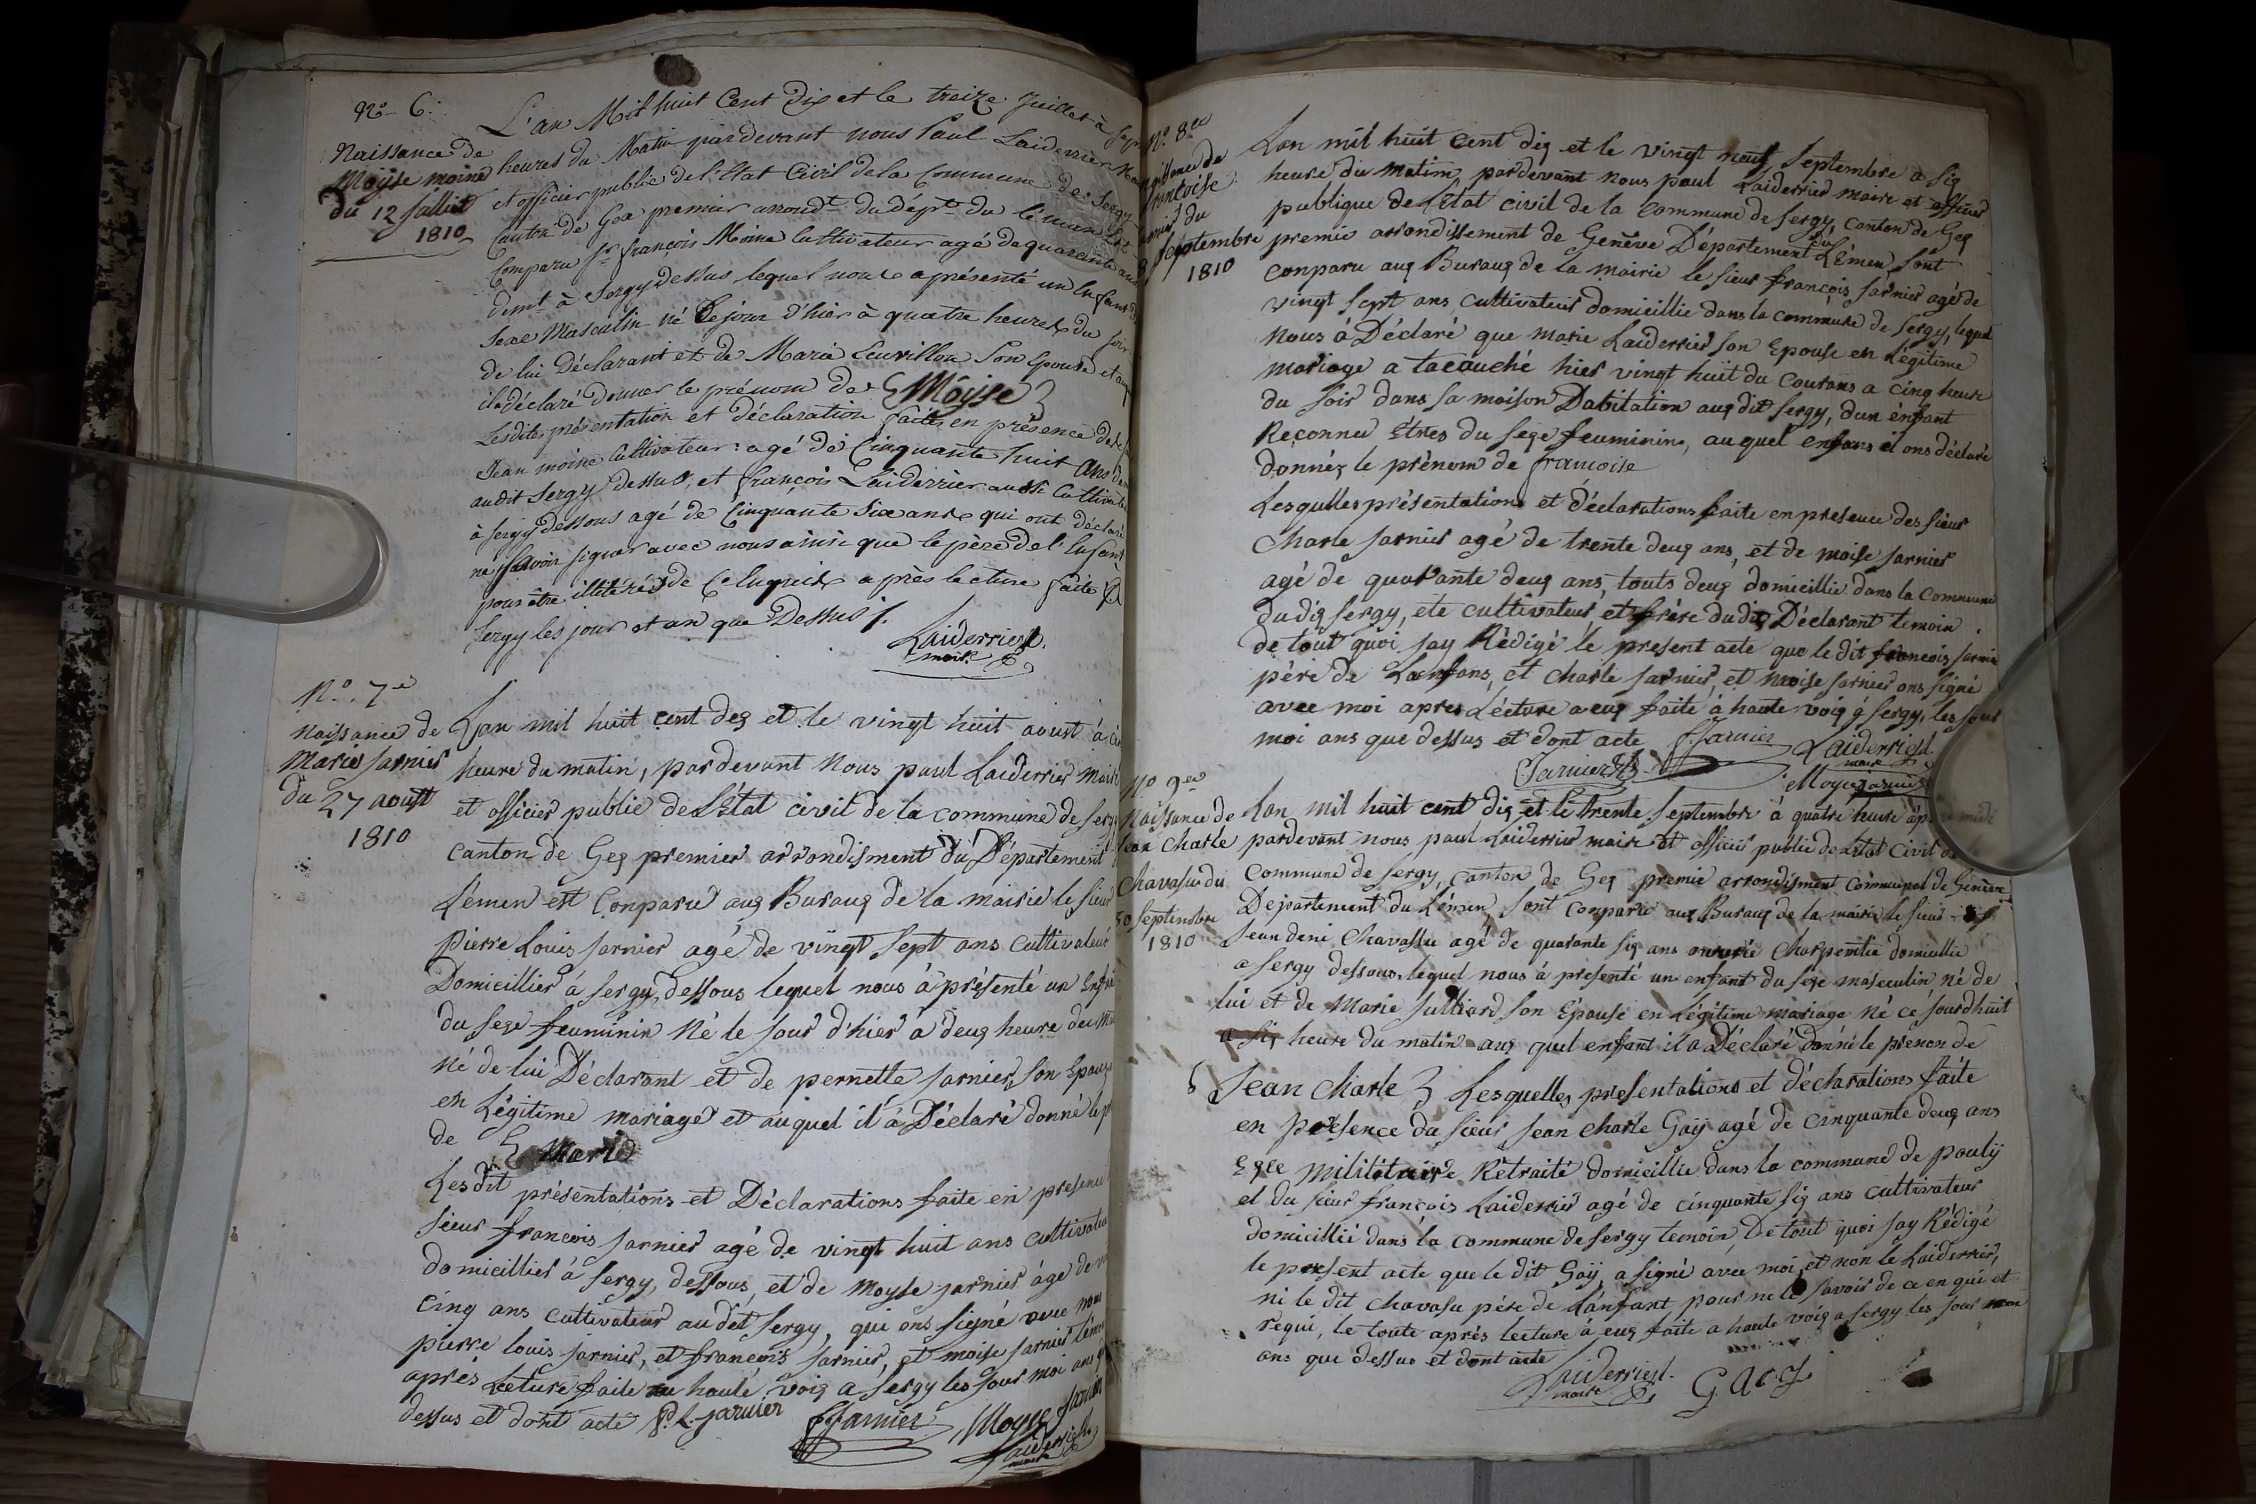 N.º 6.
Naissance de
Moÿse moine
du 12 Julliet
1810
L'an Mil huit Cent Dix et le treize Juillet à Sept
heures du Matin pardevant nous Paul Laiderrier
et officier public de l'Etat Civil de la Commune de Sergy
Canton de Gex premier arrondt. du dépt. du Léman Est
Comparu Sr. françois Moine Cultivateur agé de quarante ans
demt. à Sergy Dessus lequel nous a présenté un Enfant
Sexe Masculin né le jour d'hier à quatre heures du soir
de lui Déclarant et de Maria Leuvillon Son Epouse et
il a déclaré donner le prénom de Moÿse
Lesdites présentation et déclaration faites en présence de
Jean moine Cultivateur agé de Cinquante huit ans
audit Sergy Dessus, et françois Laiderrier aussi Cultivateur
à Sergy dessous agé de Cinquante Six ans qui ont déclaré
ne Savoir signer avec nous ainsi que le père de l'Enfant
pour être illitérés de Ce Enquis après lecture faite
Sergy les jour et an que Dessus
Laiderrier
maire
N.º 7e
naissance de
Marie Jarnier
du 27 aoust
1810
Lan mil huit cent deg et le vingt huit aoust à
heure du matin, pardevant Nous paul Laiderrier maire
et officier public de l'Etat civil de la commune de Sergy
canton de Geg premier arrondisment du Département
Lémen est Conparu aug Buraug de la mairie le sieur
Pierre Louis Jarnier agé de vingt Sept ans Cultivateur
Domicillier à Sergy, dessous lequel nous à présenté un Enfant
du Sege feuminin Né le jour d'hier à deug heure du
Né de lui Déclarant et de pernette Jarnier, son Epouse
en Légitime mariage et auquel il à Déclaré donné le
de Marie
Les dit présentations et Déclarations faite en presence
sieur françois Jarnier agé de vingt huit ans cultivateur
domicillier à Sergy, dessous, et de Moyse Jarnier âgé de
cinq ans cultivateur audit Sergy, qui ons signé avec nous
pierre louis Jarnier, et françois Jarnier, et moise Jarnier
après Lecture faite haute voig a Sergy les jour moi ans
dessus et dont acte P. L. Jarnier
FJarnier Moyse Jarnier
Laiderrier
maire
N.º 8e
francoise
du
septembre
1810
Lan mil huit cent dig et le vingt neuf Septembre a Sig
heure du matin, pardevant nous paul Laiderrier maire et officier
publique de l'Etat civil de la commune de Sergy, canton de Geg
premie arrondissement de Genêve Département du Lémen, sont
conparu aug Buraug de la mairie le sieur françois Jarnier agé de
vingt Sept ans, cultivateur domicillie dans la commune de Sergy, lequel
nous à Déclaré que marie Laiderrier son Epouse en Légitime
mariage a accauché hier vingt huit du courans a cinq heure
du soir dans sa maison Dabitation aug dit Sergy, dun enfant
Reconnu êtres du sege feuminin, auquel enfans il ons déclaré
donnés le prénom de francoise
Lesqulles présentations et déclarations faite en presence des sieur
Charle Jarnier agé de trente deug ans, et de moise Jarnier
agé de quarante deug ans, touts deug domicillie dans la commune
du dig Sergy, ete cultivateur, et frère du dig Déclarant temoin
de tout quoi jay Rédigé le present acte que le dit francois Jarnier
père de Lanfans, et charle Jarnier, et moise Jarnier ons signé
avec moi apres Lécture a eug faite à haute voig a Sergy, les jour
moi ans que dessus et dont acte FJarnier Laiderrier
maire
CJarnier Moyse Jarnier
N.º 9e
Naissance de
Jean Charle
Chavasu du
30 Septembre
1810
Lan mil huit cent dig et le trente Septembre à quatre heure après midi
pardevant nous paul Laiderrier maire et officier public de letat Civil de
commune de Sergy, canton de Geg premie arrondisment communal de Genève
Departement du Lémen, sont comparu aug Buraug de la mairie le sieur
Jean deni Chavassu agé de quarante sig ans ouvrié Charpentie domicillie
a Sergy dessous, lequel nous à presenté un enfant du sege maseculin né de
lui et de Marie Julliard son Epouse en Légitime mariage Né ce jourdhuit
a sig heure du matin aug quel enfant il a Déclaré donné le prénon de
Jean Charle Lesquelles présentations et déclarations faite
en présence du sieur Jean charle Gaÿ agé de cinquante deug ans
Egce militaire Rétraité domicillie dans la commune de pouliÿ
et du sieur françois Laiderrier agé de cinquante sig ans cultivateur
domicillié dans la commune de Sergy temoin, De tout quoi jay Rédigé
le present acte que le dit Gaÿ, a signé avec moi, et non le Laiderrier,
ni le dit chavasu père de Lanfant, pour ne le savoir de ce en qui et
requi, le toute après lecture à eug faite a haute voig a Sergy les jour moi
ans que dessus et dont acte
Laiderrier
maire